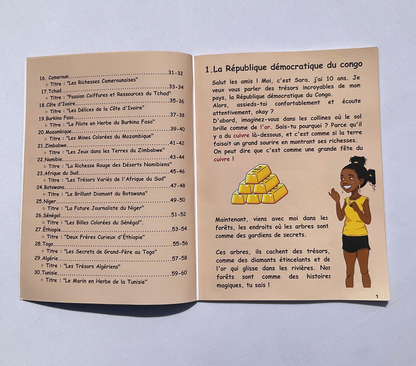 16. Cameroun..............................31-32
○ Titre : "Les Richesses Camerounaises"
17.Tchad..............................33-34
○ Titre : "Passion Coiffures et Ressources du Tchad"
18.Côte d'Ivoire..............................35-36
○ Titre : "Les Délices de la Côte d'Ivoire"
19.Burkina Faso..............................37-38
○ Titre : "Le Pilote en Herbe du Burkina Faso"
20.Mozambique..............................39-40
○ Titre : "Les Mines Colorées du Mozambique"
21.Zimbabwe..............................41-42
○ Titre : "Les Jeux dans les Terres du Zimbabwe"
22.Namibie..............................43-44
○ Titre : "La Richesse Rouge des Déserts Namibiens"
23.Afrique du Sud..............................45-46
○ Titre : "Les Trésors Variés de l'Afrique du Sud"
24.Botswana..............................47-48
○ Titre : "Le Brillant Diamant du Botswana"
25.Niger..............................49-50
○ Titre : "La Future Journaliste du Niger"
26.Sénégal..............................51-52
○ Titre : "Les Billes Colorées du Sénégal".
27.Éthiopie..............................53-54
○ Titre : "Deux Frères Curieux d'Éthiopie"
28.Togo..............................55-56
○ Titre : "Les Secrets de Grand-Père au Togo"
29.Algérie..............................57-58
○ Titre : "Les Trésors Algériens"
30.Tunisie..............................59-60
○ Titre : "Le Marin en Herbe de la Tunisie"
1.La République démocratique du congo
Salut les amis ! Moi, c'est Sara, j'ai 10 ans. Je
veux vous parler des trésors incroyables de mon
pays, la République démocratique du Congo.
Alors, assieds-toi confortablement et écoute
attentivement, okay ?
D'abord, imaginez-vous dans les collines où le sol
brille comme de l'or. Sais-tu pourquoi ? Parce qu'il
y a du cuivre là-dessous, et c'est comme si la terre
faisait un grand sourire en montrant ses richesses.
On peut dire que c'est comme une grande fête du
cuivre !
Maintenant, viens avec moi dans les
forêts, les endroits où les arbres sont
comme des gardiens de secrets.
Ces arbres, ils cachent des trésors,
comme des diamants étincelants et de
l'or qui glisse dans les rivières. Nos
forêts sont comme des histoires
magiques, tu sais !
1